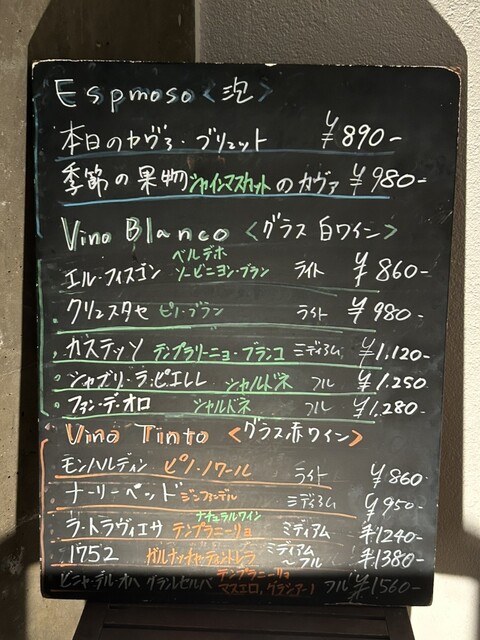 Espmoso <泡>
本日のカヴァ・ブリュット ¥890-
季節の果物シャインマスカットのカヴァ ¥980-
Vino Blanco <グラス 白ワイン>
エル・フィスゴン ベルデホ ソービニヨン・ブラン ライト ¥860-
クリュスタセ ピノ・ブラン ライト ¥980-
ガステッソ テンプラリーニョ・ブランコ ミディアム ¥1,120-
シャブリ・ラ・ピエレレ シャルドネ フル ¥1,250
ファン・デ・オロ シャルドネ フル ¥1,280-
Vino Tinto <グラス赤ワイン>
モンハルディン ピノ・ノワール ライト ¥860
ナーリーヘッド ジンファンデル ミディアム ¥950-
ナチュラルワイン
ラ・トラヴィエサ テンプラニーリョ ミディアム ¥1240-
1752 ガルナッチャ・ティントレラ ミディアム〜フル ¥1380-
ビニャ・デル・オハ グランレセルバ テンプラニーリョ マスエロ、グラシアーノ フル ¥1560-